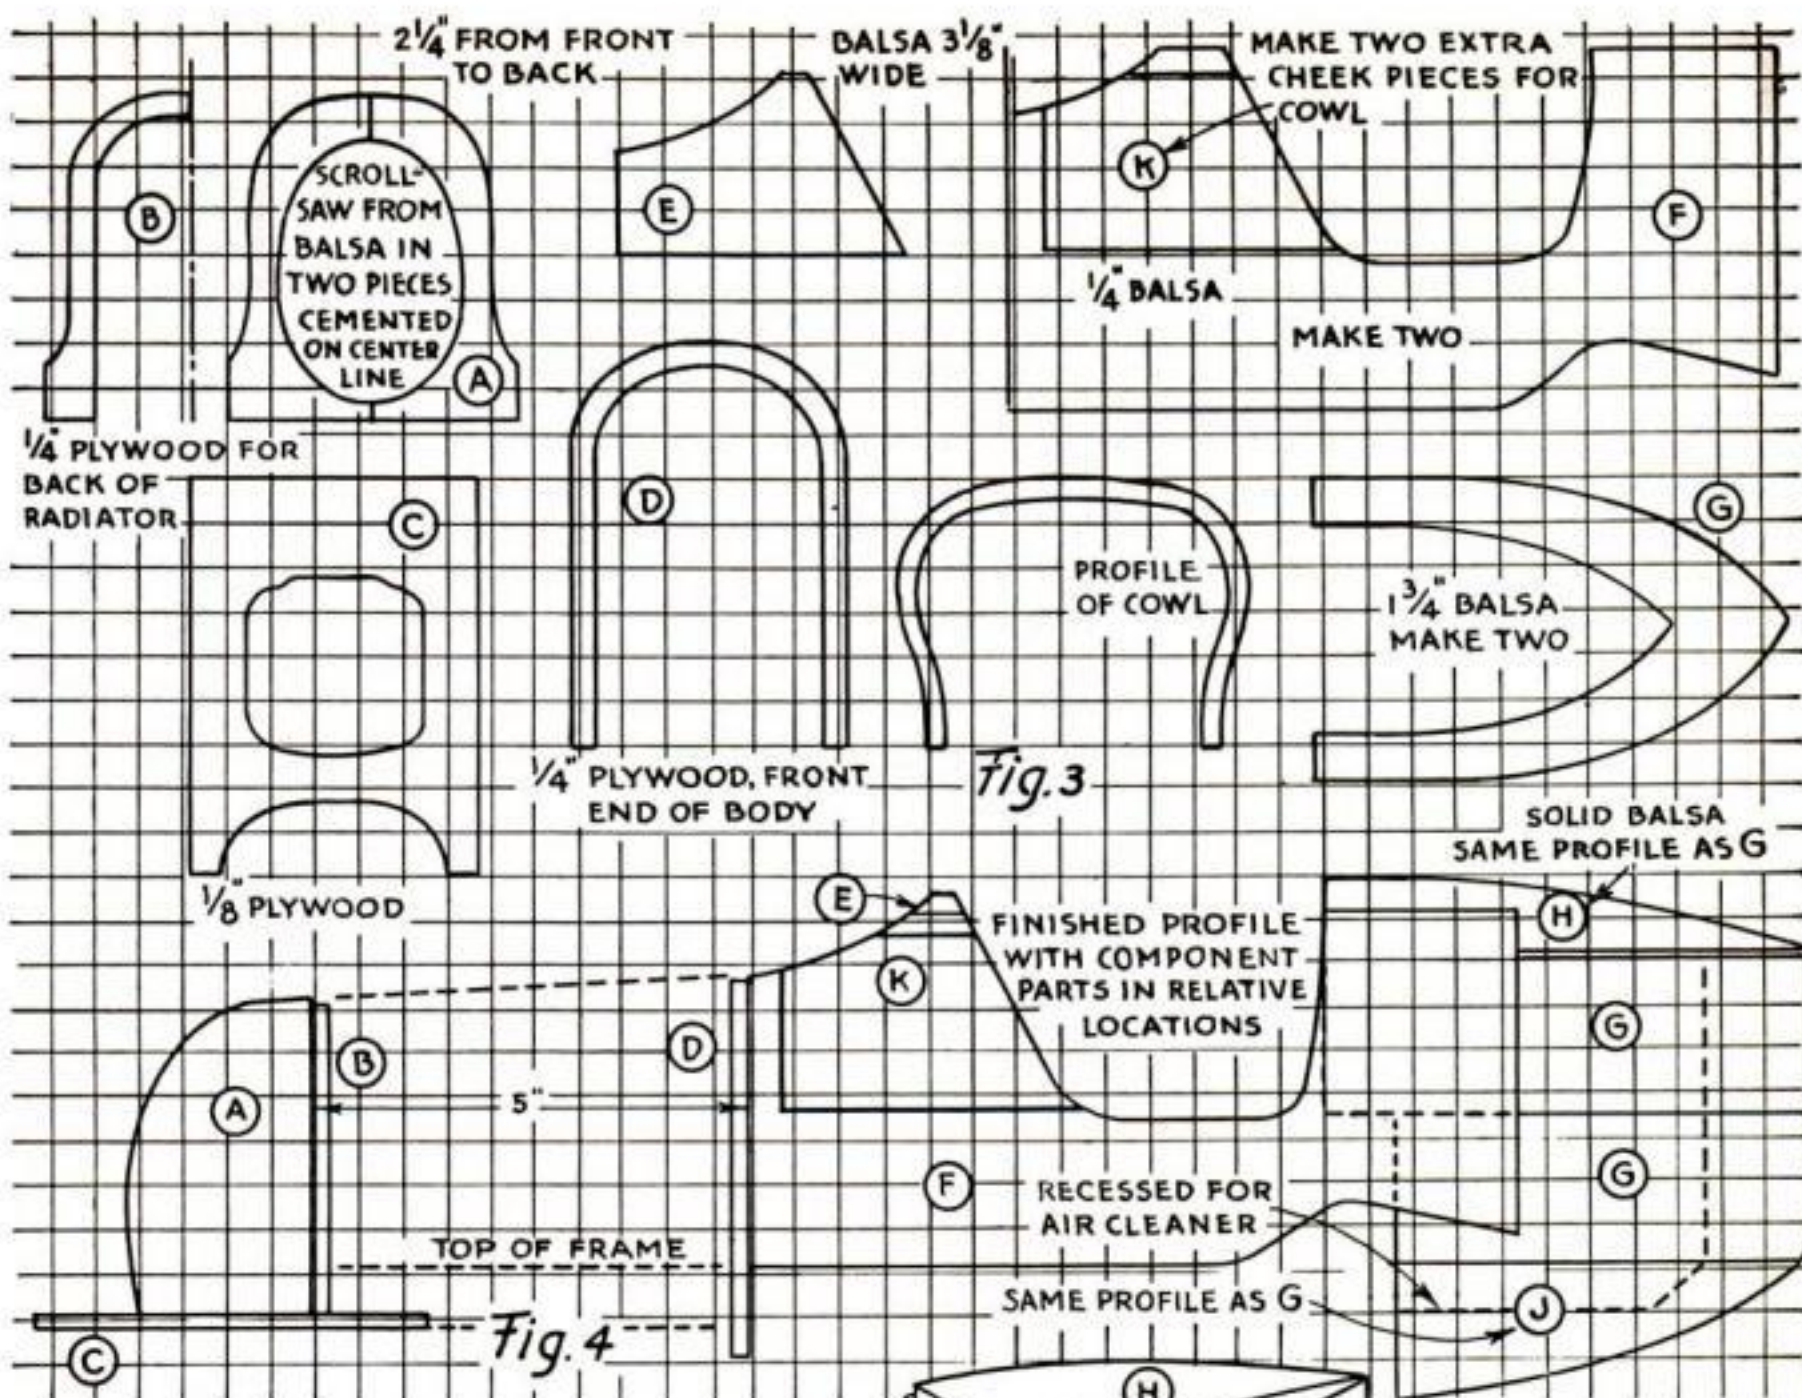 2 1/4" FROM FRONT
TO BACK
BALSA 3 1/8"
WIDE
MAKE TWO EXTRA
CHEEK PIECES FOR
COWL
B
SCROLL-
SAW FROM
BALSA IN
TWO PIECES
CEMENTED
ON CENTER
LINE
A
E
K
F
1/4" BALSA
MAKE TWO
1/4" PLYWOOD FOR
BACK OF
RADIATOR
C
D
PROFILE
OF COWL
G
1 3/4" BALSA
MAKE TWO
1/4" PLYWOOD, FRONT
END OF BODY
Fig. 3
SOLID BALSA
SAME PROFILE AS G
1/8" PLYWOOD
E
FINISHED PROFILE
WITH COMPONENT
PARTS IN RELATIVE
LOCATIONS
H
K
G
B
D
A
5"
F
RECESSED FOR
AIR CLEANER
G
TOP OF FRAME
SAME PROFILE AS G
J
Fig. 4
C
H